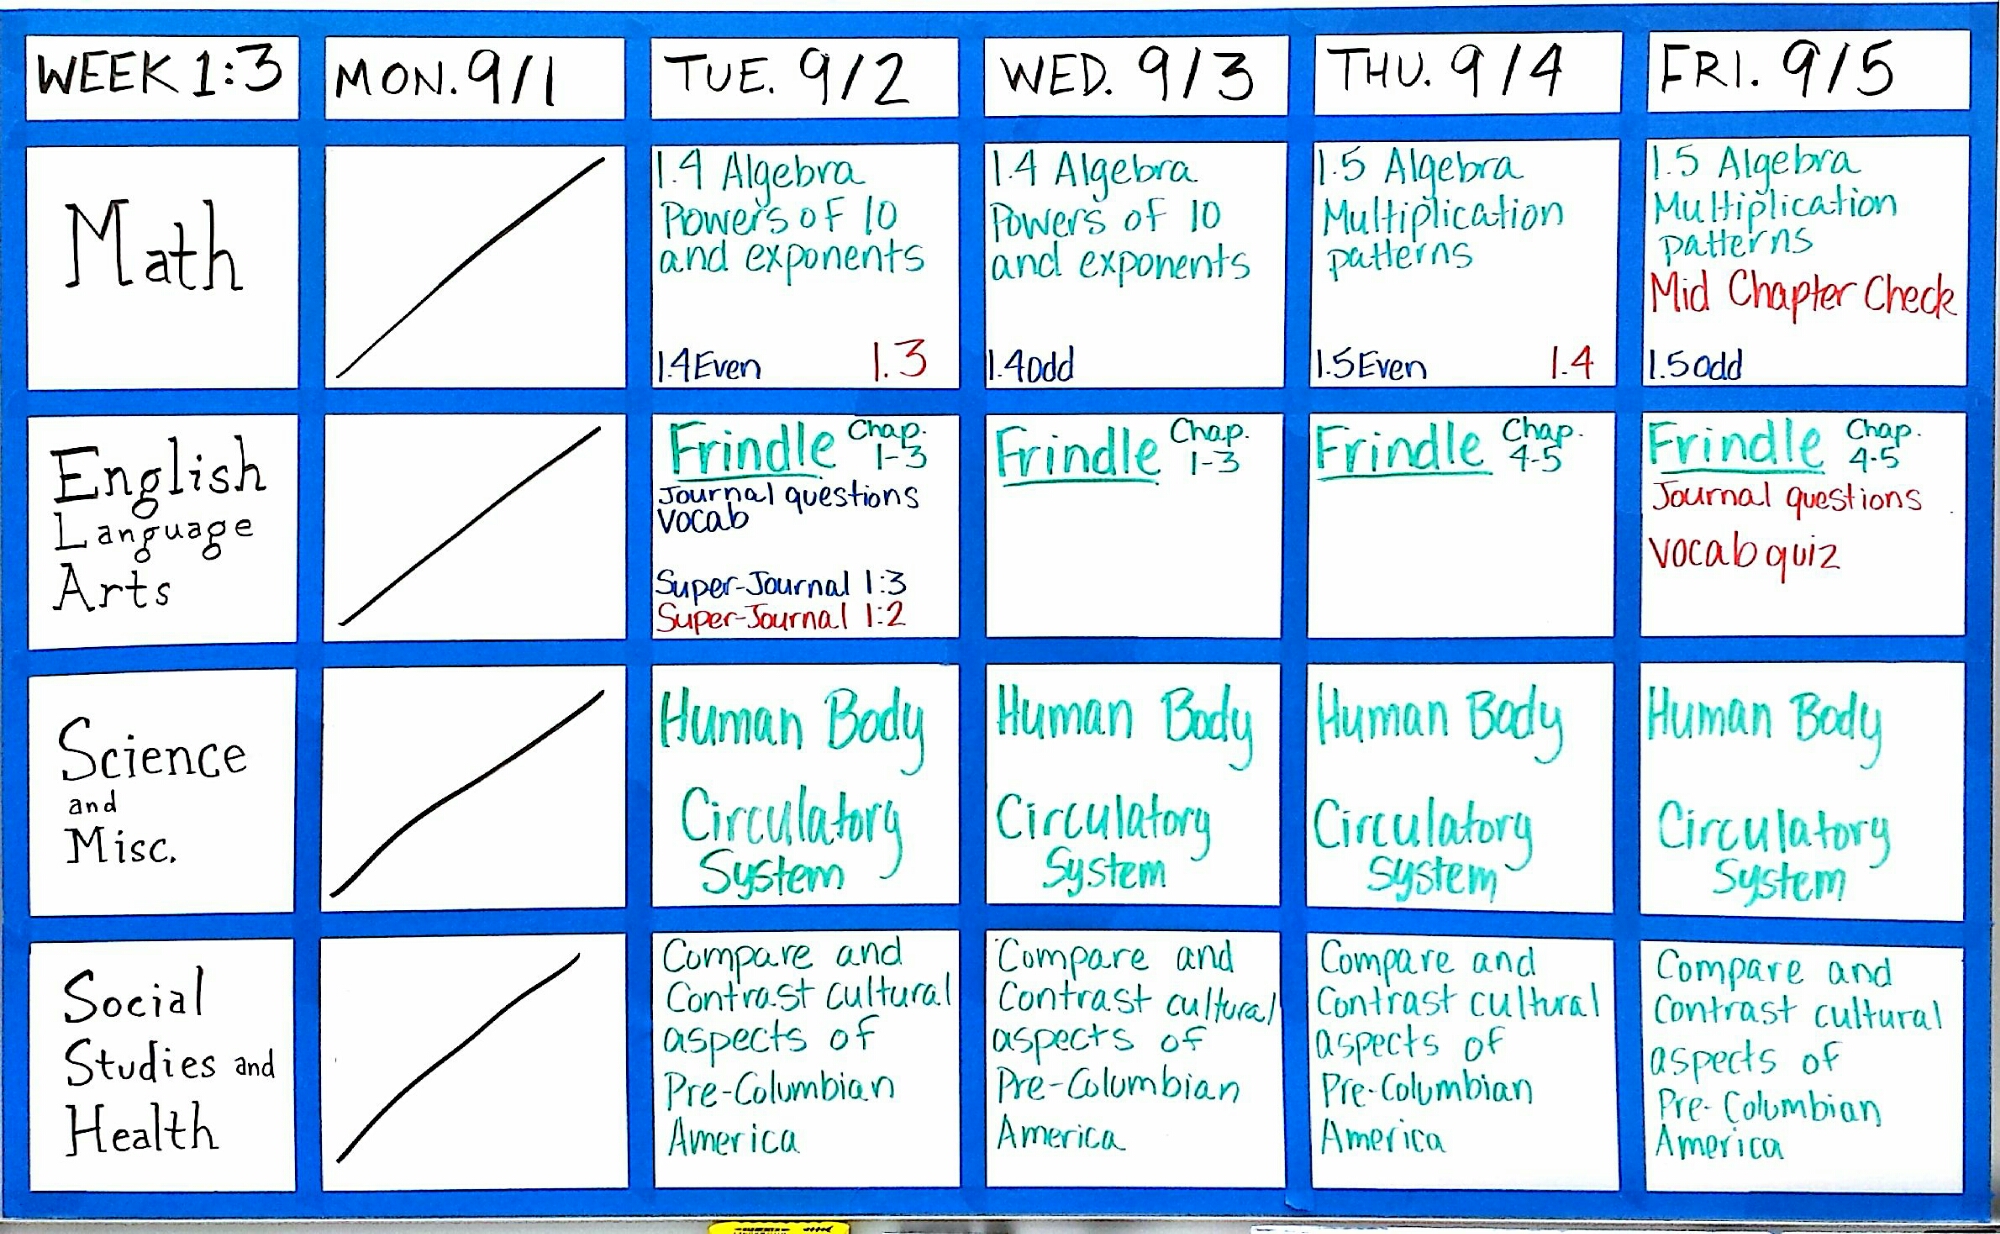 WEEK 1:3
MON. 9/1
TUE. 9/2
WED. 9/3
THU. 9/4
FRI. 9/5
Math
1.4 Algebra
Powers of 10
and exponents
1.4 Even 1.3
1.4 Algebra
Powers of 10
and exponents
1.4 odd
1.5 Algebra
Multiplication
patterns
1.5 Even 1.4
1.5 Algebra
Multiplication
patterns
Mid Chapter Check
1.5 odd
English
Language
Arts
Frindle Chap.
1-3
Journal questions
vocab
Super-Journal 1:3
Super-Journal 1:2
Frindle Chap.
1-3
Frindle Chap.
4-5
Frindle Chap.
4-5
Journal questions
vocab quiz
Science
and
Misc.
Human Body
Circulatory
System
Human Body
Circulatory
System
Human Body
Circulatory
System
Human Body
Circulatory
System
Social
Studies and
Health
Compare and
Contrast cultural
aspects of
Pre-Columbian
America
Compare and
Contrast cultural
aspects of
Pre-Columbian
America
Compare and
Contrast cultural
aspects of
Pre-Columbian
America
Compare and
Contrast cultural
aspects of
Pre-Columbian
America